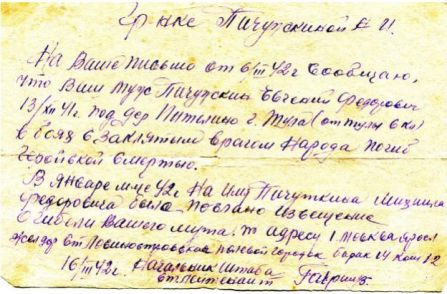 Гр-нке Пичужкиной А И.
На Ваше письмо от 6/III 42 г Сообщаю,
что Ваш муж Пичужкин Евгений Федорович
13/XII 41 г. под дер Питилино г. Тула (от тулы 6 км)
в боях с Заклятым врагом Народа погиб
геройской Смертью.
В Январе м-це 42 г. На имя Пичужкина
Федоровича было послано Извещение
о гибели Вашего мужа. по адресу 1. Москва
жел дор ст. Лосиноостровская полевой городок барак 14 ком 12
16/III 42 г. Начальник Штаба
ст. лейтенант